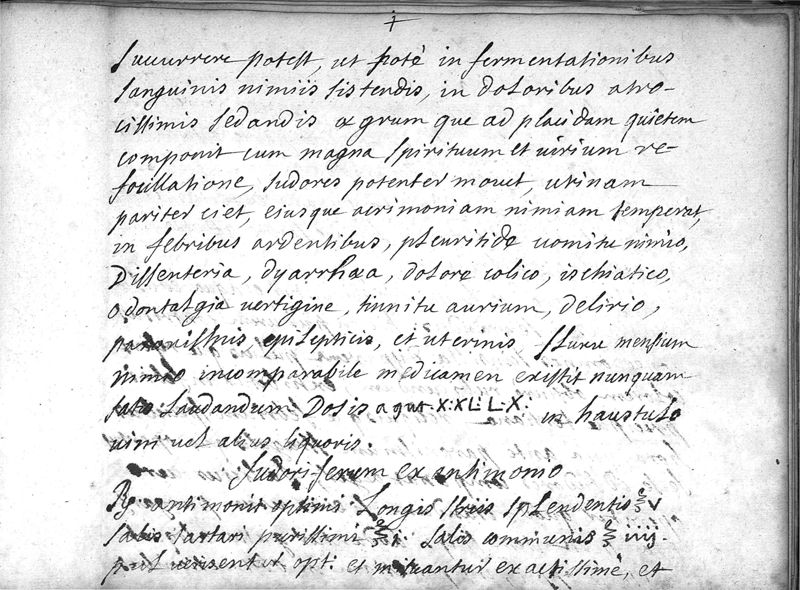 +
Succurrere potest, ut potè in fermentationibus
sanguinis nimiis sistendis, in doloribus atro-
cissimis sedandis ægrum que ad placidam quietem
componit cum magna spirituum et virium re-
focillatione, sudores potenter movet, urinam
pariter ciet, eiusque acrimoniam nimiam temperat,
in febribus ardentibus, pleuritide vomitu nimio,
Dissenteria, dyarrhæa, dolore colico, ischiatico,
odontalgia vertigine, tinnitu aurium, delirio,
paroxismis epilepticis, et uterinis fluxu mensium
nimio incomparabile medicamen existit nunquam
satis laudandum Dosis a gut. X: XL: L. X: in haustulo
vini vel alius liquoris.
Sudoriferum ex antimonio
℞. antimonii optimi Longis striis splendentis ℥ v
salis tartari purissimi ℥ i: salis communis ℥ iiij.
pulverisentur opt: et misceantur exactissimè, et